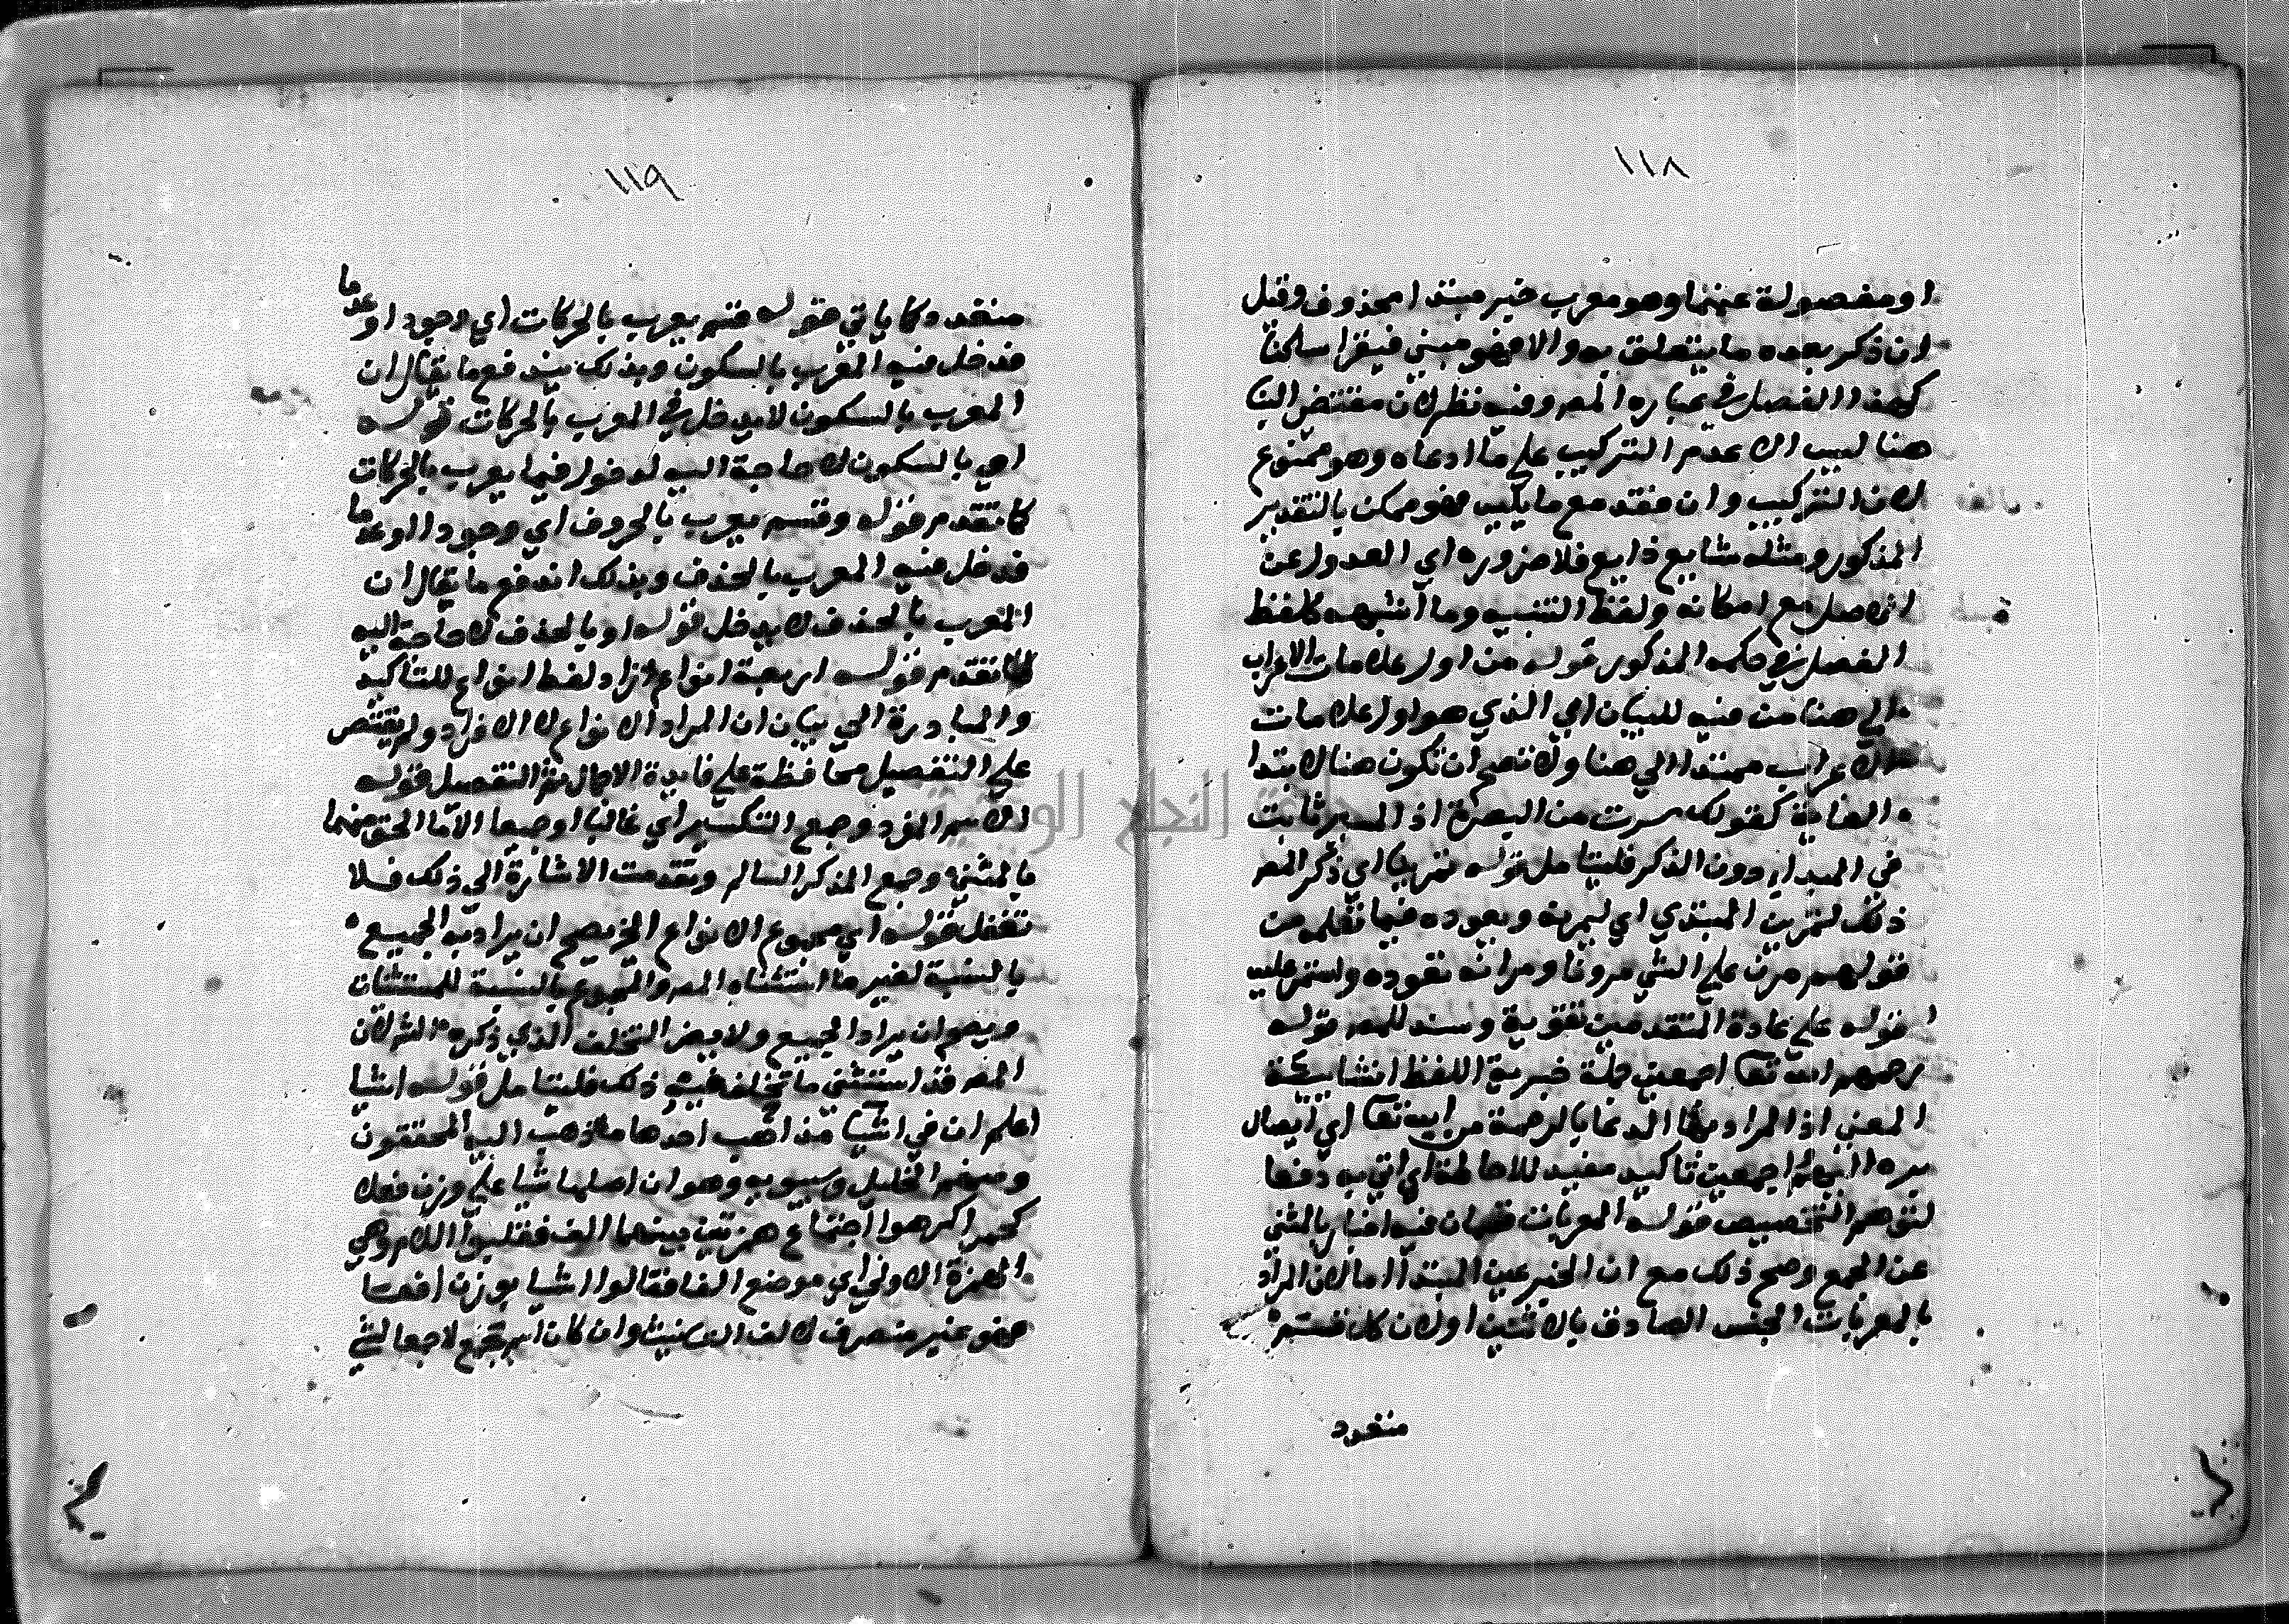 ١١٨
او مفصولة عنهما وهو معرب خبر مبتدا محذوف وقيل
ان ذكر بعده ما يتعلق به والا فهو مبني فيقرا ساكنا
كهذا الفصل في عباره المصر وفيه نظر لان مقتضي البنا
هنا ليس الا عدم التركيب علي ما ادعاه وهو ممنوع
لان التركيب وان فقد مع ما يليه فهو ممكن بالتقدير
المذكور ومثله شايع ذايع فلا ضروره اي العدول عن
الاصل مع امكانه ولفظ التنبيه وما اشبهه كلفظ
الفصل في حكمه المذكور قوله من اول علامات الاعراب
الي هنا من فيه للبيان اي الذي هو اول علامات
الاعراب ممتدا الي هنا ولا تصح ان تكون هنا لابتدا
الغاية كقولك سرت من البصرة اذ السير ثابت
في المبدا دون الذكر فليتامل قوله تمرينا اي ذكر المصر
ذلك لتمرين المبتدي اي ليمرنه ويعوده فيما تعلمه من
قولهم مرن علي الشي مرونا ومرانة تعوده واستمر عليه
قوله علي عادة المتقدمين تقوية وسند للمصر قوله
رحمهم الله تعا اجمعين جملة خبرية اللفظ انشايية
المعني اذ المراد بها الدعا بالرحمة من الله تعا اي ايصال
بره اليهم اجمعين تاكيد مفيد للاحاطة اي اتي به دفعا
لتوهم التخصيص قوله المعربات قسمان فيه اخبار بالمثني
عن الجمع وصح ذلك مع ان الخبر عين المبتدا اما لان المراد
بالمعربات الجنس الصادق بالاثنين او لان كل قسم
متعدد
١١٩
متعدد كما ياتي قوله قسم يعرب بالحركات اي وجودا او عدما
فدخل فيه المعرب بالسكون وبذلك يندفع ما يقال ان
المعرب بالسكون لا يدخل في المعرب بالحركات قوله
اي بالسكون لا حاجة اليه لدخوله فيما يعرب بالحركات
كما تقدم قوله وقسم يعرب بالحروف اي وجودا او عدما
فدخل فيه المعرب بالحذف وبذلك اندفع ما يقال ان
المعرب بالحذف لا يدخل قوله او بالحذف لا حاجة اليه
لما تقدم قوله اربعة انواع زاد لفظ انواع للتاكيد
والمبادرة الي بيان ان المراد الانواع لا الافراد ولم يقتصر
علي التفصيل محافظة علي فايدة الاجمال ثم التفصيل قوله
الاسم المفرد وجمع التكسير اي غالبا او جميعا الا ما الحق منهما
بالمثني وجمع المذكر السالم وتقدمت الاشارة الي ذلك فلا
تغفل قوله اي مجموع الانواع الخ يصح ان يراد به الجميع
بالنسبة لغير ما استثناه المصر والمجموع بالنسبة للمستثنات
ويصح ان يراد الجميع ولا يضر التخلف الذي ذكره الش لان
المصر قد استثني ما تخلف فيه ذلك فليتامل قوله اشيا
اعلم ان في اشيا مذاهب احدها ما ذهب اليه المحققون
ومنهم الخليل وسيبويه وهو ان اصلها شيا علي وزن فعلا
كحمرا كرهوا اجتماع همزتين بينهما الف فقلبوا اللام وهي
الهمزة الاولي اي موضع الفا فقالوا اشيا بوزن لفعا
فهو غير منصرف لالف التانيث وان كان اسم جمع لا جمعا لشي